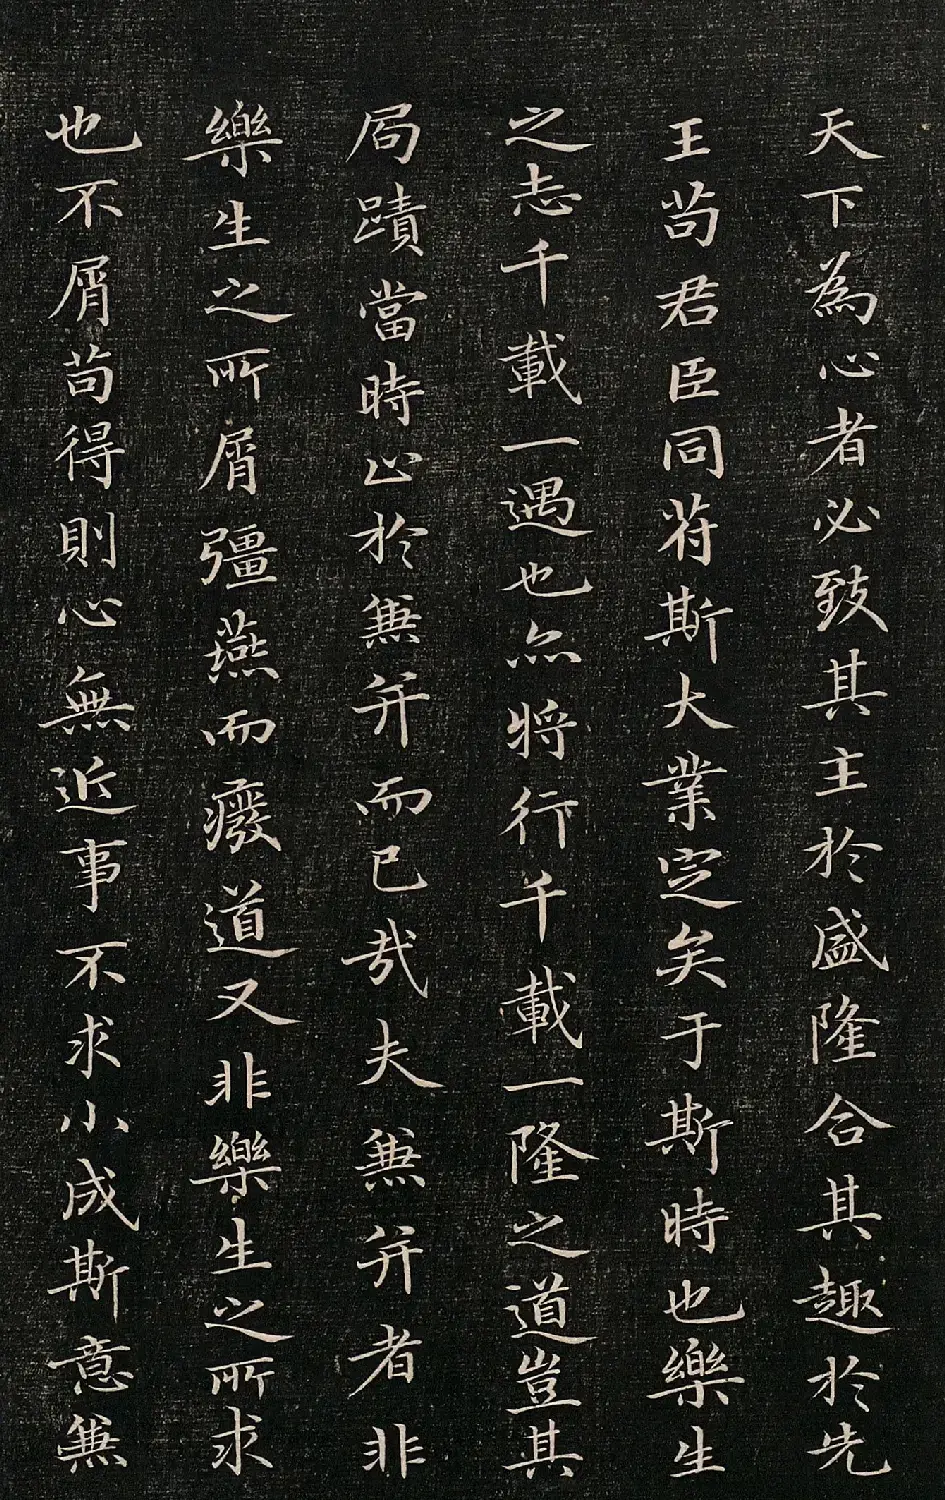 天下為心者必致其主於盛隆合其趣於先
王苟君臣同符斯大業定矣于斯時也樂生
之志千載一遇也亦將行千載一隆之道豈其
局蹟當時止於兼并而已哉夫兼并者非
樂生之所屑彊燕而癈道又非樂生之所求
也不屑苟得則心無近事不求小成斯意兼